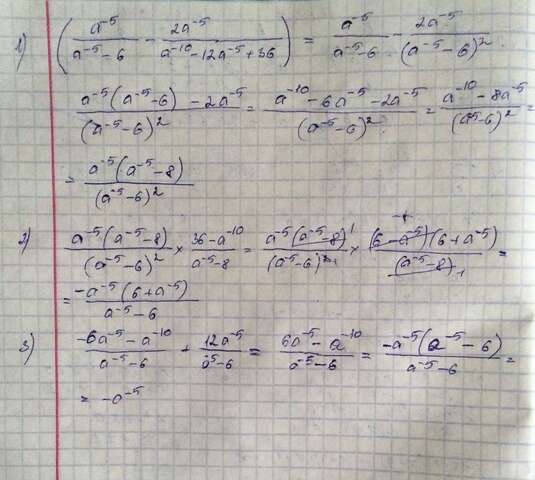 1) (a⁻⁵/(a⁻⁵-6) - 2a⁻⁵/(a⁻¹⁰-12a⁻⁵+36)) = a⁻⁵/(a⁻⁵-6) - 2a⁻⁵/(a⁻⁵-6)²
(a⁻⁵(a⁻⁵-6) - 2a⁻⁵)/(a⁻⁵-6)² = (a⁻¹⁰-6a⁻⁵-2a⁻⁵)/(a⁻⁵-6)² = (a⁻¹⁰-8a⁻⁵)/(a⁻⁵-6)² =
= a⁻⁵(a⁻⁵-8)/(a⁻⁵-6)²
2) a⁻⁵(a⁻⁵-8)/(a⁻⁵-6)² × (36-a⁻¹⁰)/(a⁻⁵-8) = a⁻⁵(a⁻⁵-8)¹/(a⁻⁵-6)²¹ × (6-a⁻⁵)⁻¹(6+a⁻⁵)/(a⁻⁵-8)₁ =
= -a⁻⁵(6+a⁻⁵)/(a⁻⁵-6)
3) (-6a⁻⁵-a⁻¹⁰)/(a⁻⁵-6) + 12a⁻⁵/(a⁻⁵-6) = (6a⁻⁵-a⁻¹⁰)/(a⁻⁵-6) = -a⁻⁵(a⁻⁵-6)/(a⁻⁵-6) =
= -a⁻⁵